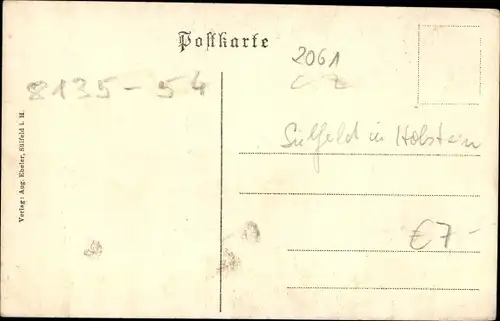 Postkarte
2061
8135-54
Sülfeld in Holstein
€7-
Verlag: Aug. Eheler, Sülfeld i. H.